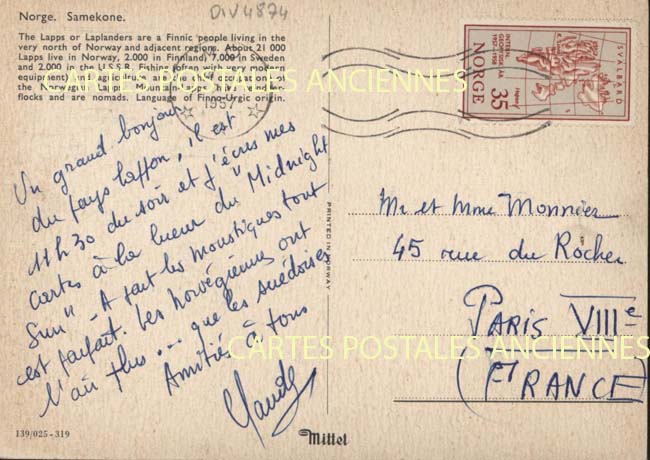 DIV4874
Norge. Samekone.
The Lapps or Laplanders are a Finnic people living in the
very north of Norway and adjacent regions. About 21 000
Lapps live in Norway, 2.000 in Finnland, 7.000 in Sweden
and 2.000 in the U.S.S.R. Fishing (often with very modern
equipment) and agriculture are the chief occupations of
the Norwegian Lapps. Mountain-Lapps have reindeer-
flocks and are nomads. Language of Finno-Urgic origin.
CARTES POSTALES ANCIENNES
1957
SVALBARD
INTERN.
GEOFYSISK ÅR
1957-1958
NORGE 35
Un grand bonjour
du pays lappon, il est
11h30 du soir et j'écris mes
cartes à la lueur du "Midnight
Sun" - A part les moustiques tout
est parfait. Les Norvégiennes ont
l'air plus... que les suédoises
Amitiés à tous
PRINTED IN NORWAY
Mr et Mme Monnier
45 rue du Rocher
PARIS VIIIe
(FRANCE)
CARTES POSTALES ANCIENNES
139/025-319
Mittet